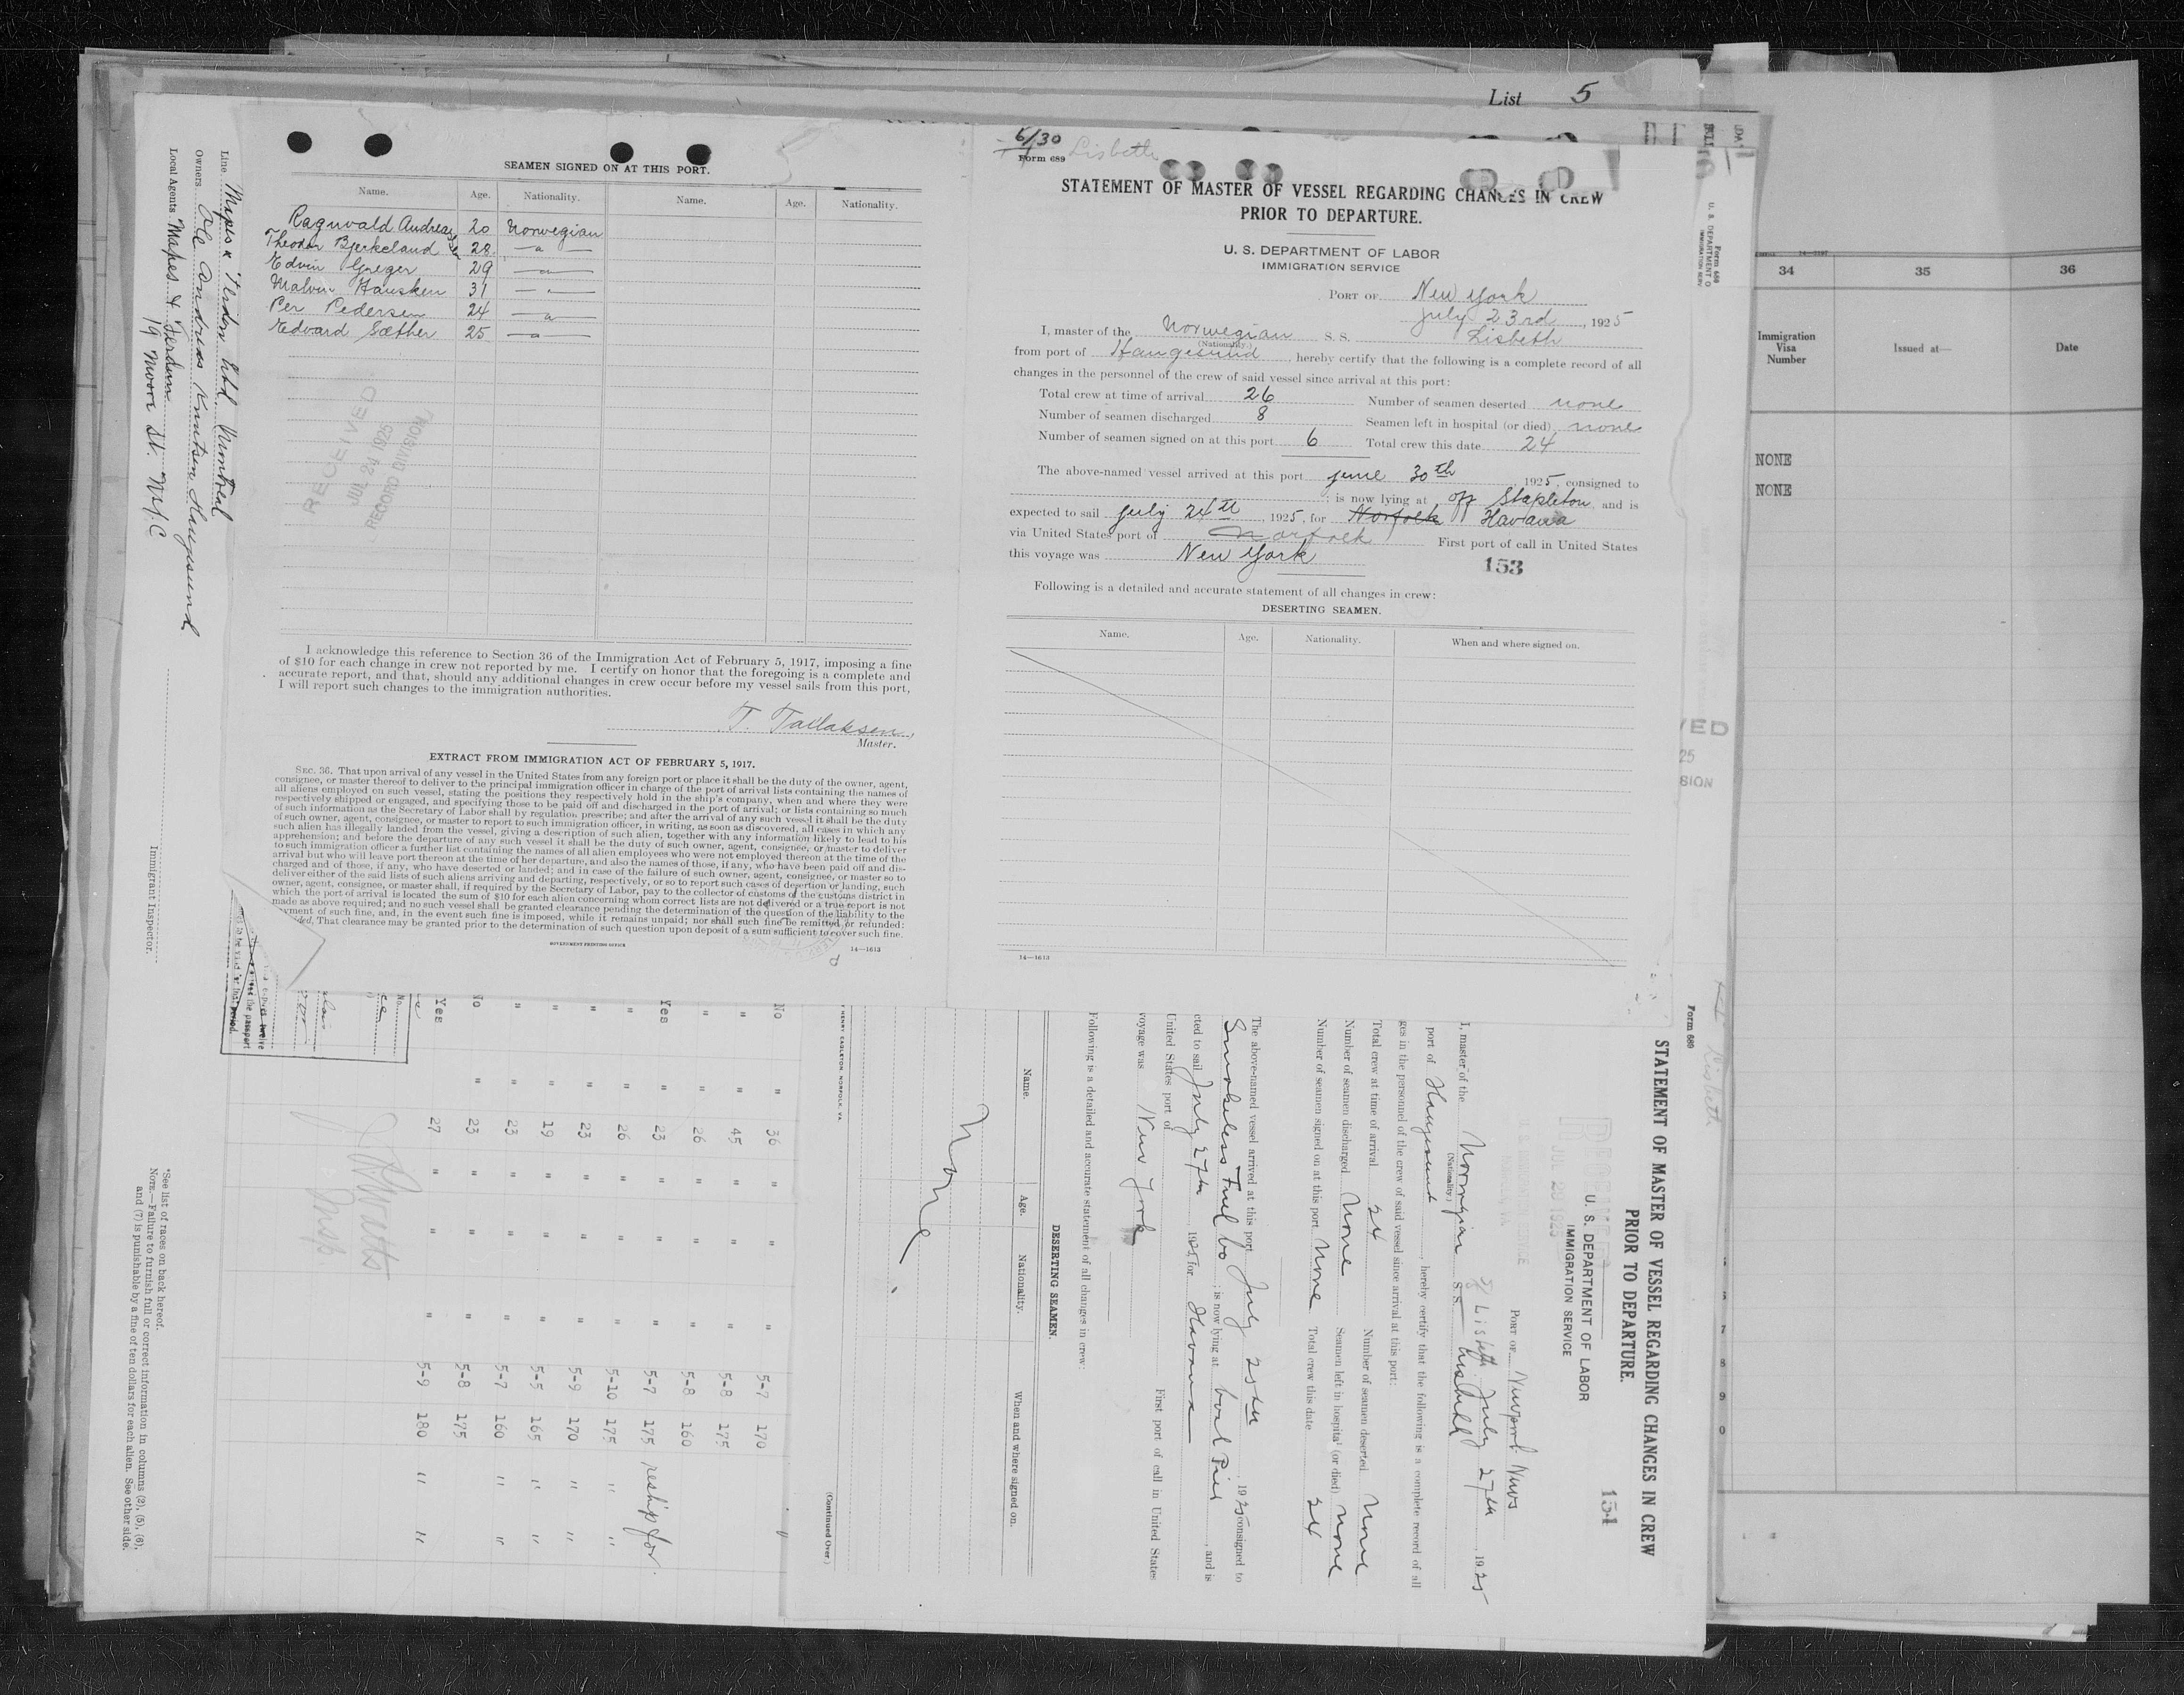 List 5
SEAMEN SIGNED ON AT THIS PORT.
Name. Age. Nationality. Name. Age. Nationality.
Ragnvald Andreassen 20 Norwegian
Theodor Bjerkeland 28 — " —
Edvin Greger 29 — " —
Malvin Hausken 31 — " —
Per Pedersen 24 — " —
Edvard Sæther 25 — " —
RECEIVED
JUL 24 1925
RECORD DIVISION
I acknowledge this reference to Section 36 of the Immigration Act of February 5, 1917, imposing a fine
of $10 for each change in crew not reported by me. I certify on honor that the foregoing is a complete and
accurate report, and that, should any additional changes in crew occur before my vessel sails from this port,
I will report such changes to the immigration authorities.
T. Tallaksen,
Master.
EXTRACT FROM IMMIGRATION ACT OF FEBRUARY 5, 1917.
SEC. 36. That upon arrival of any vessel in the United States from any foreign port or place it shall be the duty of the owner, agent,
consignee, or master thereof to deliver to the principal immigration officer in charge of the port of arrival lists containing the names of
all aliens employed on such vessel, stating the positions they respectively hold in the ship's company, when and where they were
respectively shipped or engaged, and specifying those to be paid off and discharged in the port of arrival; or lists containing so much
of such information as the Secretary of Labor shall by regulation prescribe; and after the arrival of any such vessel it shall be the duty
of such owner, agent, consignee, or master to report to such immigration officer, in writing, as soon as discovered, all cases in which any
such alien has illegally landed from the vessel, giving a description of such alien, together with any information likely to lead to his
apprehension; and before the departure of any such vessel it shall be the duty of such owner, agent, consignee, or master to deliver
to such immigration officer a further list containing the names of all alien employees who were not employed thereon at the time of the
arrival but who will leave port thereon at the time of her departure, and also the names of those, if any, who have been paid off and dis-
charged and of those, if any, who have deserted or landed; and in case of the failure of such owner, agent, consignee, or master so to
deliver either of the said lists of such aliens arriving and departing, respectively, or so to report such cases of desertion or landing, such
owner, agent, consignee, or master shall, if required by the Secretary of Labor, pay to the collector of customs of the customs district in
which the port of arrival is located the sum of $10 for each alien concerning whom correct lists are not delivered or a true report is not
made as above required; and no such vessel shall be granted clearance pending the determination of the question of the liability to the
payment of such fine, and, in the event such fine is imposed, while it remains unpaid; nor shall such fine be remitted or refunded:
ided, That clearance may be granted prior to the determination of such question upon deposit of a sum sufficient to cover such fine.
GOVERNMENT PRINTING OFFICE
14—1613
6/30 Lisbeth
Form 689
STATEMENT OF MASTER OF VESSEL REGARDING CHANGES IN CREW
PRIOR TO DEPARTURE.
U. S. DEPARTMENT OF LABOR
IMMIGRATION SERVICE
PORT OF New York
July 23rd, 1925
I, master of the Norwegian S. S. Lisbeth
(Nationality.)
from port of Haugesund, hereby certify that the following is a complete record of all
changes in the personnel of the crew of said vessel since arrival at this port:
Total crew at time of arrival 26 Number of seamen deserted none
Number of seamen discharged 8 Seamen left in hospital (or died) none
Number of seamen signed on at this port 6 Total crew this date 24
The above-named vessel arrived at this port june 30th, 1925, consigned to
; is now lying at off Stapleton, and is
expected to sail july 24th, 1925, for Norfolk Havana
via United States port of Norfolk First port of call in United States
this voyage was New York
153
Following is a detailed and accurate statement of all changes in crew:
DESERTING SEAMEN.
Name. Age. Nationality. When and where signed on.
14—1613
34 35 36
Immigration Visa Number Issued at— Date
NONE
NONE
Form 688
U. S. DEPARTMENT O
IMMIGRATION SERV
VED
25
SION
Owners Ole Andreas Knutsen Haugesund
Local Agents Mapes & Ferdon
19 Moore St. N.Y.C
Immigrant Inspector.
Form 689
STATEMENT OF MASTER OF VESSEL REGARDING CHANGES IN CREW
PRIOR TO DEPARTURE.
154
U. S. DEPARTMENT OF LABOR
IMMIGRATION SERVICE
PORT OF Newport News
Lisbeth July 27th, 1925
I, master of the Norwegian S. S. Lisbeth
(Nationality.)
port of Haugesund, hereby certify that the following is a complete record of all
ges in the personnel of the crew of said vessel since arrival at this port:
Total crew at time of arrival 24 Number of seamen deserted None
Number of seamen discharged None Seamen left in hospital (or died) None
Number of seamen signed on at this port None Total crew this date 24
The above-named vessel arrived at this port July 25th 1925 consigned to
Smokeless Fuel Co; is now lying at boal Pier, and is
cted to sail July 27th, 1925, for Havana
United States port of First port of call in United States
voyage was New York
Following is a detailed and accurate statement of all changes in crew:
DESERTING SEAMEN.
Name. Age. Nationality. When and where signed on.
None
HENRY EAGLETON, NORFOLK, VA.
(Continued Over)
No " 36 " " " 5-7 170
" " 45 " " " 5-8 175
" " 26 " " " 5-8 160
Yes " 23 " " " 5-7 175 reship for.
" " 26 " " " 5-10 175 " "
" " 23 " " " 5-9 170 " "
" " 19 " " " 5-5 165 " "
" " 23 " " " 5-7 160 " "
No " 23 " " " 5-8 175
Yes " 27 " " " 5-9 180 " "
Watts
Insp
*See list of races on back hereof.
NOTE.—Failure to furnish full or correct information in columns (2), (5), (6),
and (7) is punishable by a fine of ten dollars for each alien. See other side.